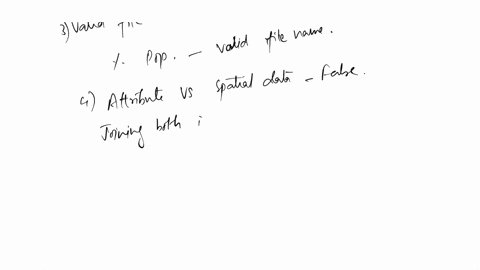 3) Valid file
% Pop. – valid file name.
4) Attribute VS spatial data – False.
Joining both i